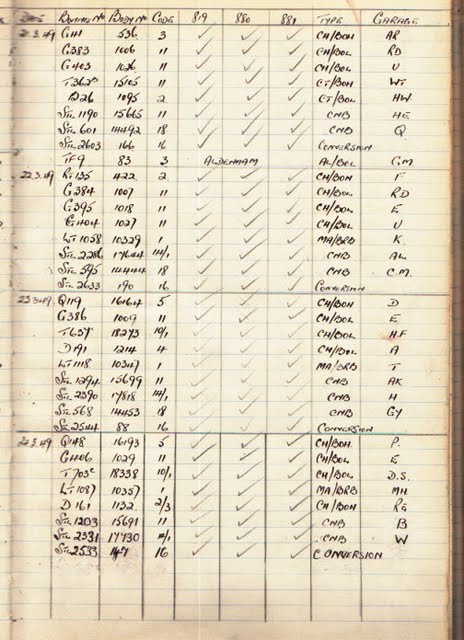 DATE RUNNING No BODY No CODE 819 880 881 TYPE GARAGE
21.3.49 G141 536 3 ✓ ✓ ✓ CH/BOH AR
G383 1006 11 ✓ ✓ ✓ CH/BOL RD
G403 1026 11 ✓ ✓ ✓ CH/BOL U
15105 11 ✓ ✓ ✓ CT/BOH WT
1095 2 ✓ ✓ ✓ CT/BOL HW
STL 1190 15665 11 ✓ ✓ ✓ CNB HE
STL 601 14492 18 ✓ ✓ ✓ CNB Q
STL 2603 166 16 ✓ ✓ ✓ CONVERSION
TF9 83 3 ALDENHAM AL/BOL GM
22.3.49 135 422 2 ✓ ✓ ✓ CH/BOH F
G384 1007 11 ✓ ✓ ✓ CH/BOL RD
G395 1018 11 ✓ ✓ ✓ CH/BOL E
G404 1027 11 ✓ ✓ ✓ CH/BOL U
LT 1058 10329 1 ✓ ✓ ✓ MA/BRB K
STL 2286 17644 ✓ ✓ ✓ CNB AL
STL 595 14444 18 ✓ ✓ ✓ CNB C.M.
STL 2633 190 16 ✓ ✓ ✓ CONVERSION
23.3.49 Q119 16164 5 ✓ ✓ ✓ CH/BOH D
G386 1009 11 ✓ ✓ ✓ CH/BOL E
18273 10/1 ✓ ✓ ✓ CH/BOL H.F
D191 1214 4 ✓ ✓ ✓ CH/BOL A
LT 1118 10347 1 ✓ ✓ ✓ MA/BRB T
STL 1294 15699 11 ✓ ✓ ✓ CNB AK
STL 2390 17818 ✓ ✓ ✓ CNB H
STL 568 14453 18 ✓ ✓ ✓ CNB GY
STL 2544 88 16 ✓ ✓ ✓ CONVERSION
Q148 16193 5 ✓ ✓ ✓ CH/BOH P.
G406 1029 11 ✓ ✓ ✓ CH/BOL E
T703c 18338 10/1 ✓ ✓ ✓ CH/BOL D.S.
LT 1087 10357 1 ✓ ✓ ✓ MA/BRB MH
D161 1132 2/3 ✓ ✓ ✓ CH/BOH RG
STL 1203 15691 11 ✓ ✓ ✓ CNB B
STL 2331 17730 ✓ ✓ ✓ CNB W
STL 2533 147 16 ✓ ✓ ✓ CONVERSION